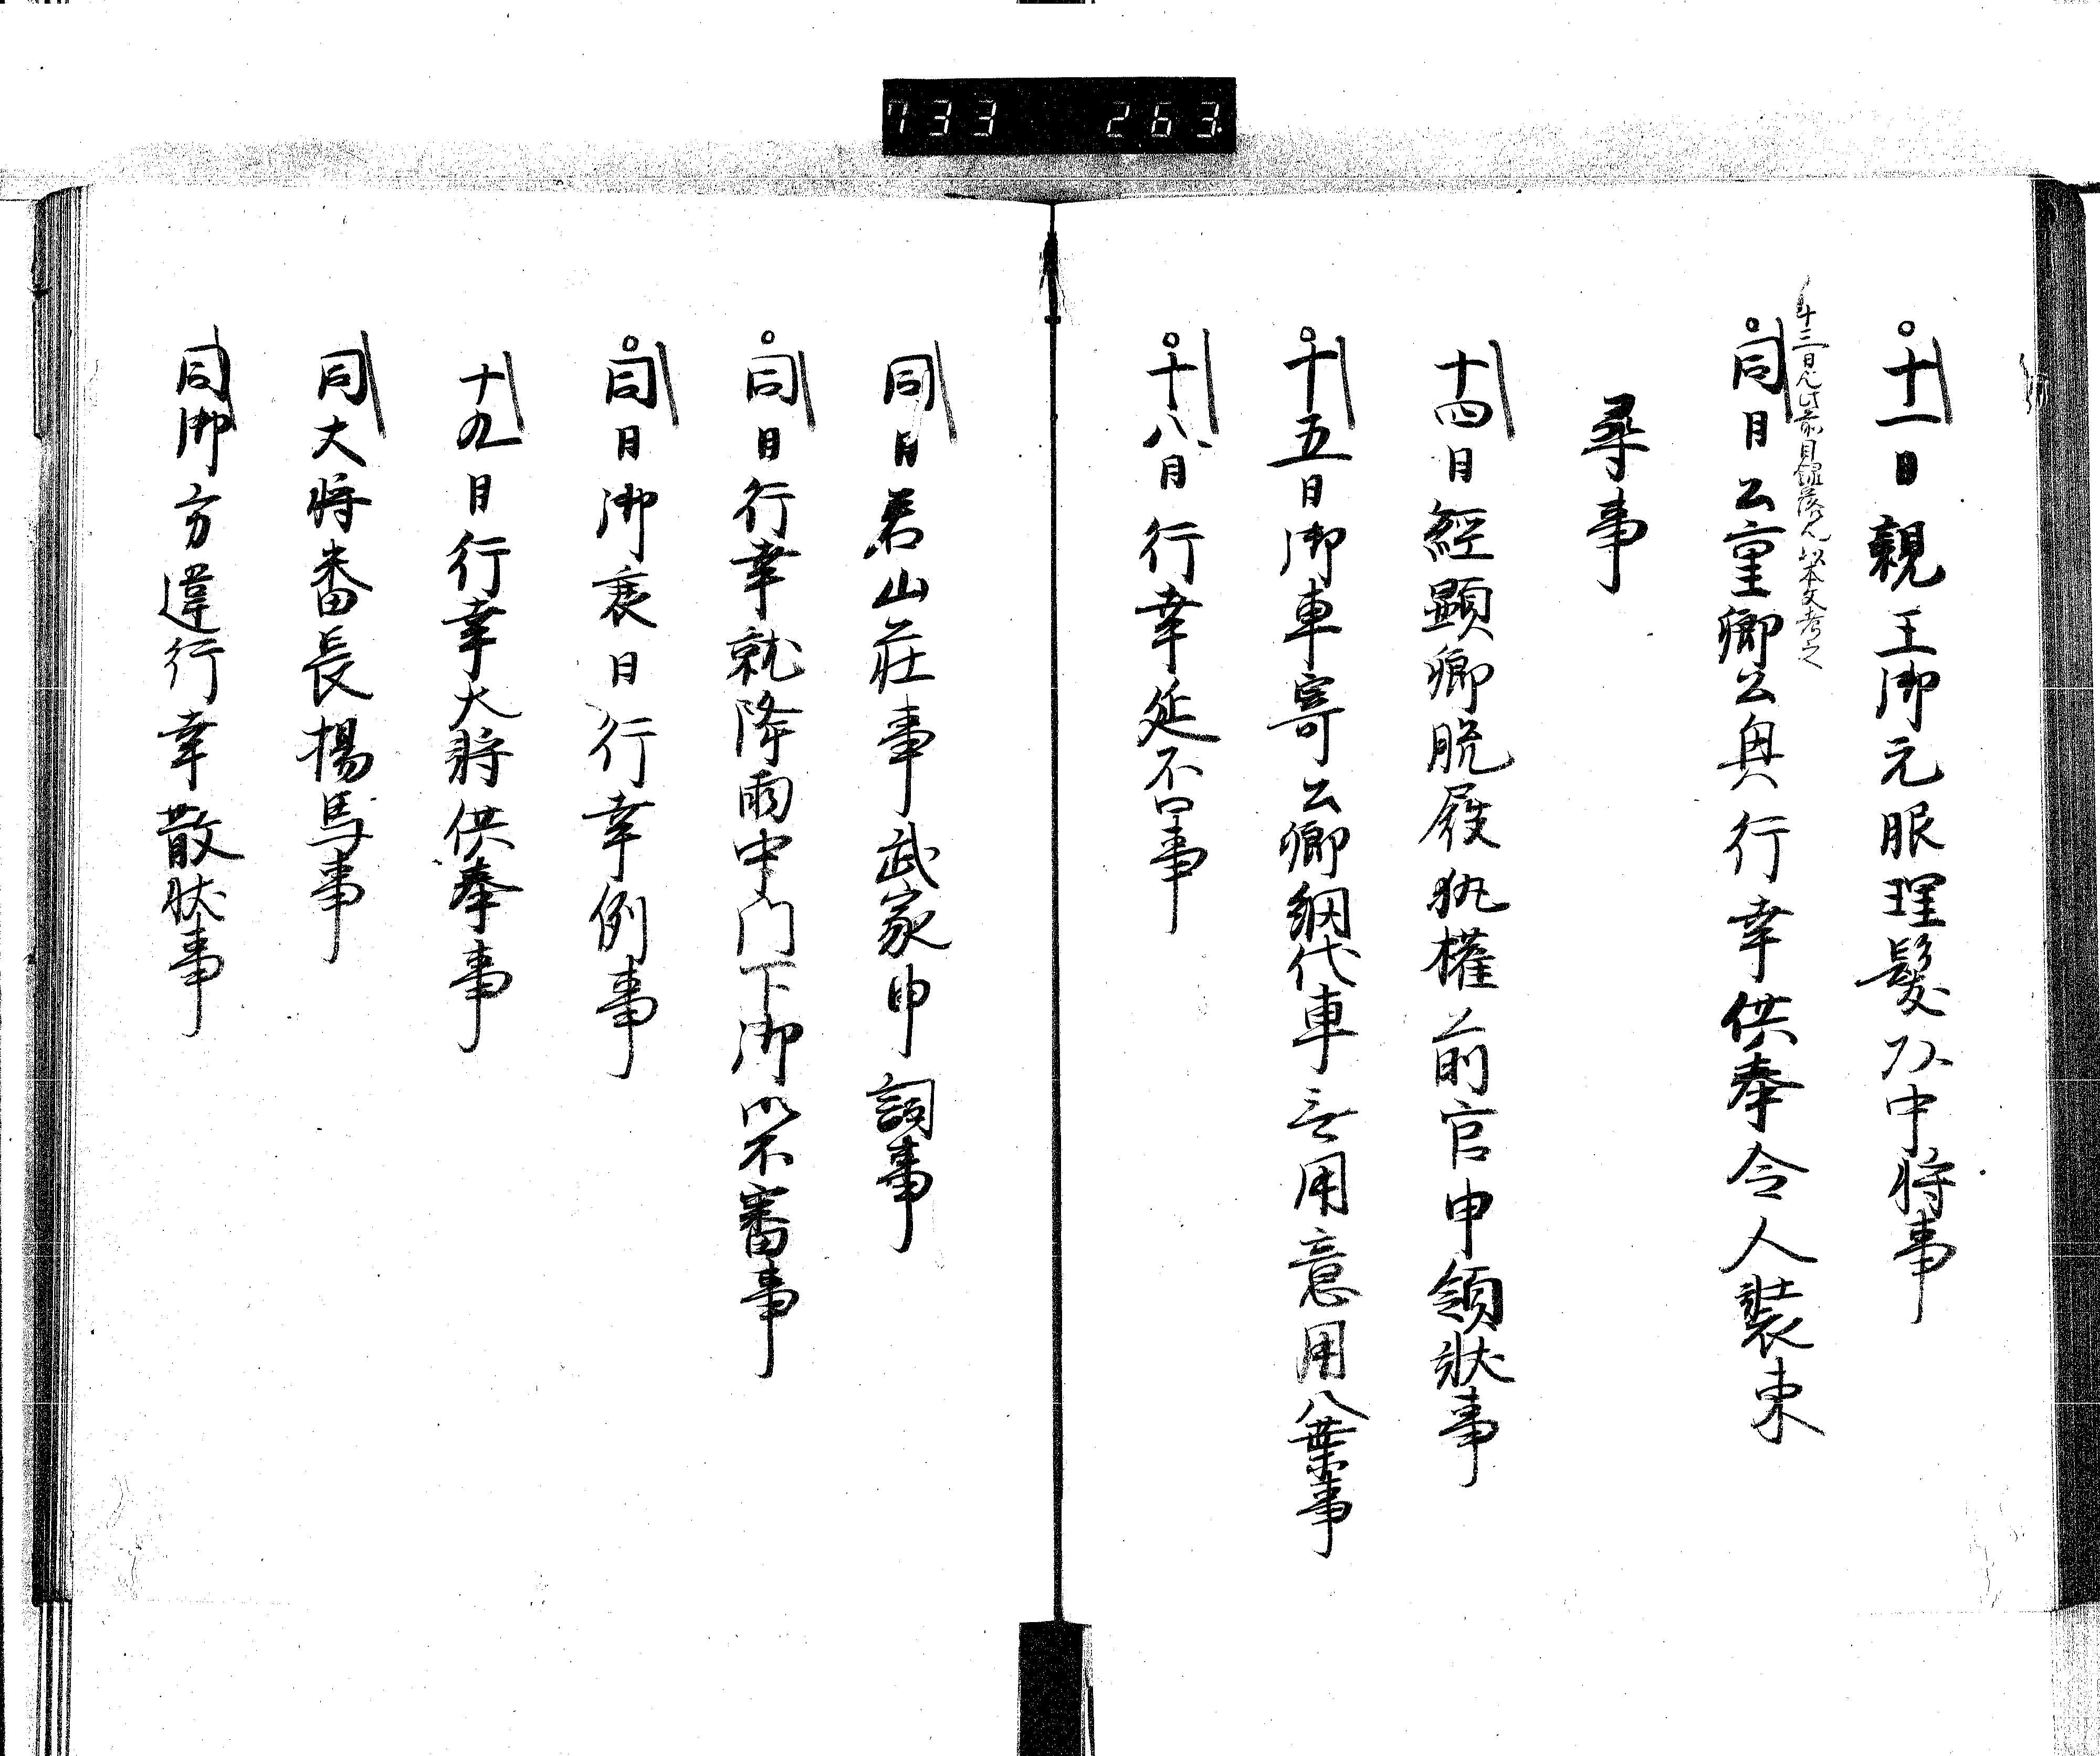 733 263
十一日親王御元服理髪以中将事
十三日也此前目録落也以本文考之
同日公重卿公奥行幸供奉令人装束
尋事
十四日経顕卿脱履執権前官申領状事
十五日御車寄公卿網代車無用意用八葉事
十八日行幸延不事
同日君山荘事武家申詞事
同日行幸就降雨中門下御以不審事
同日御衰日行幸例事
十九日行幸大将供奉事
同大将番長揚馬事
同御方違行幸散状事